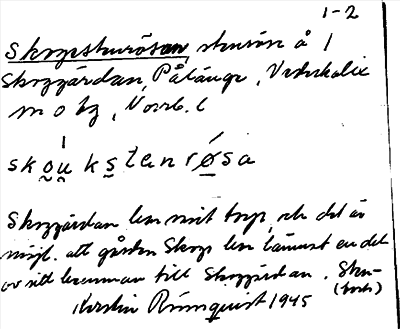 1-2
Skogsstenrösan, stenrös å 1
Skoggärdan, Pålänge, Nederkalix
sn o hg, Norrb. l
skou̯ kstenrøsa
Skoggärdan har mitt torp, och det är
möjl. att gården Skogs har lämnat en del
av sitt till Skoggärdan.
Kerstin Rönnquist 1945